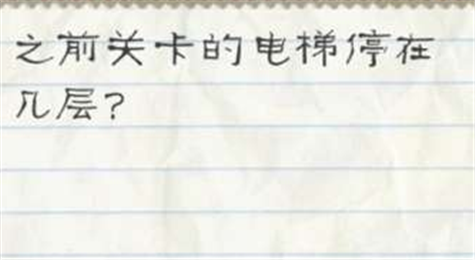 之前关卡的电梯停在
几层?